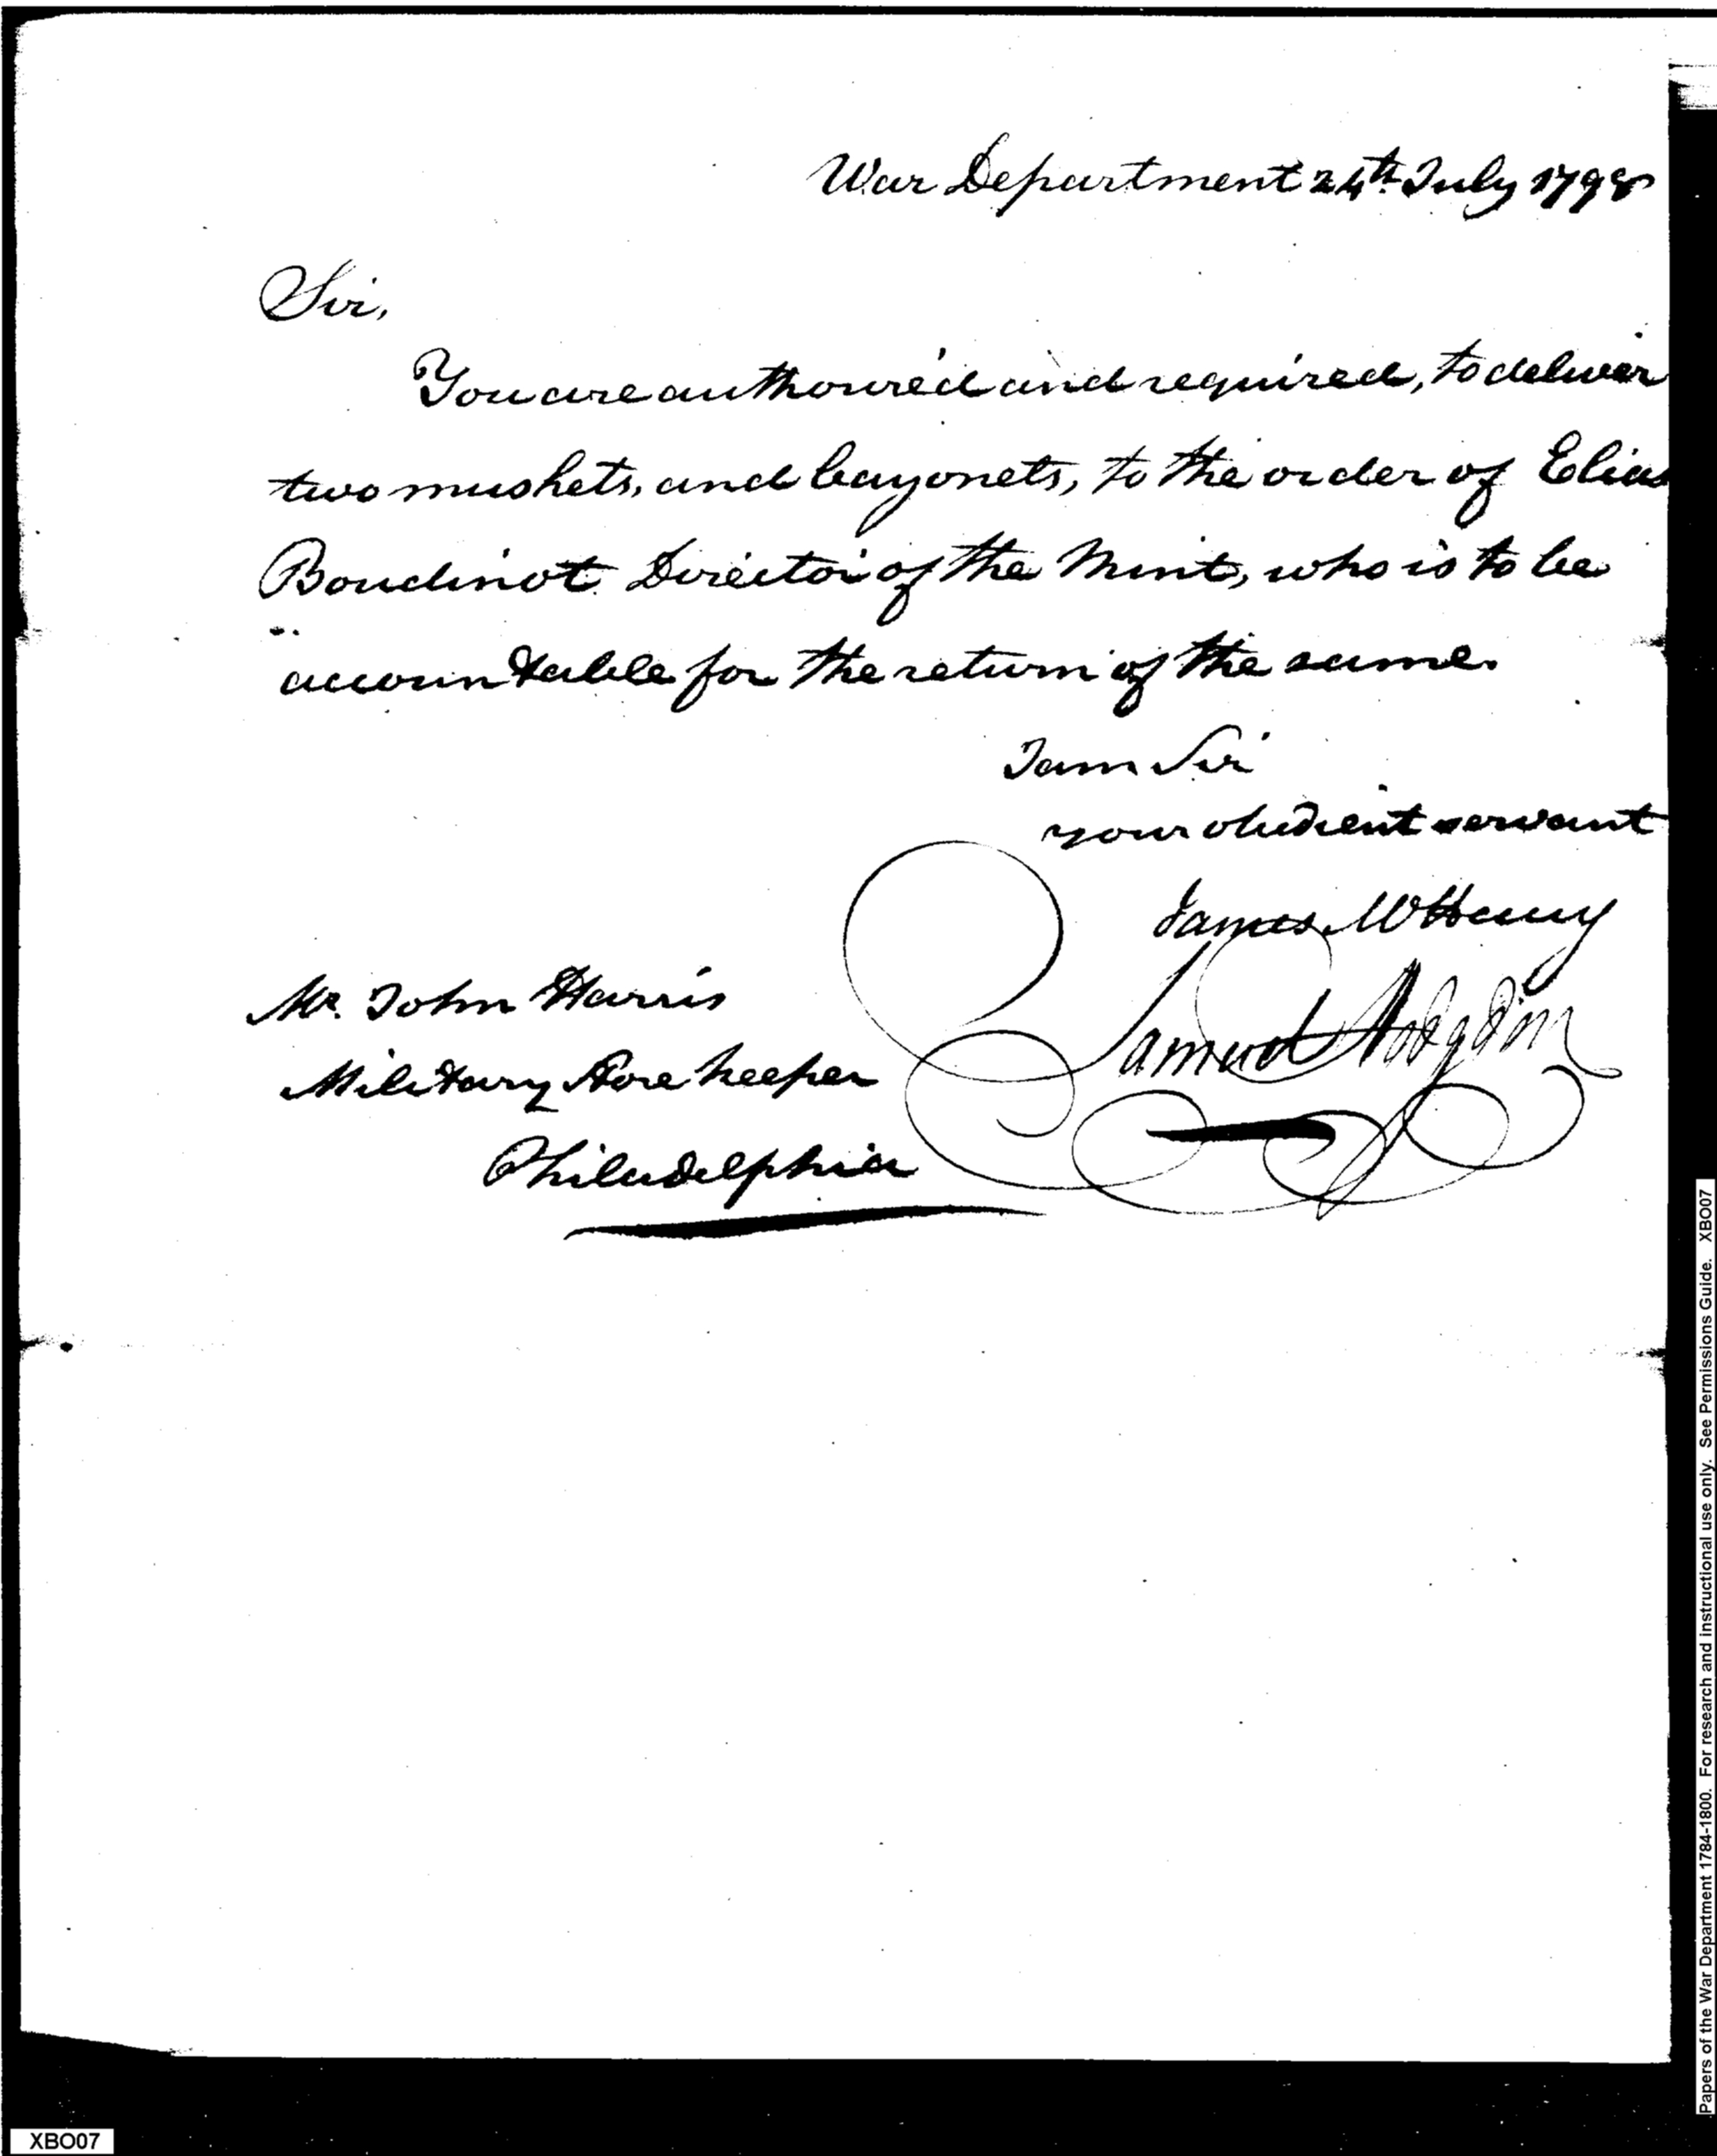 War Department 24th July 1798
Sir,
You are authorized and required, to deliver
two muskets, and bayonets, to the order of Elias
Boudinot Director of the Mint, who is to be
accountable for the return of the same.
I am Sir
your obedient servant
James McHenry
Samuel Hodgdon
Mr. John Harris
Military Store keeper
Philadelphia
Papers of the War Department 1784-1800. For research and instructional use only. See Permissions Guide. XBO07
XBO07